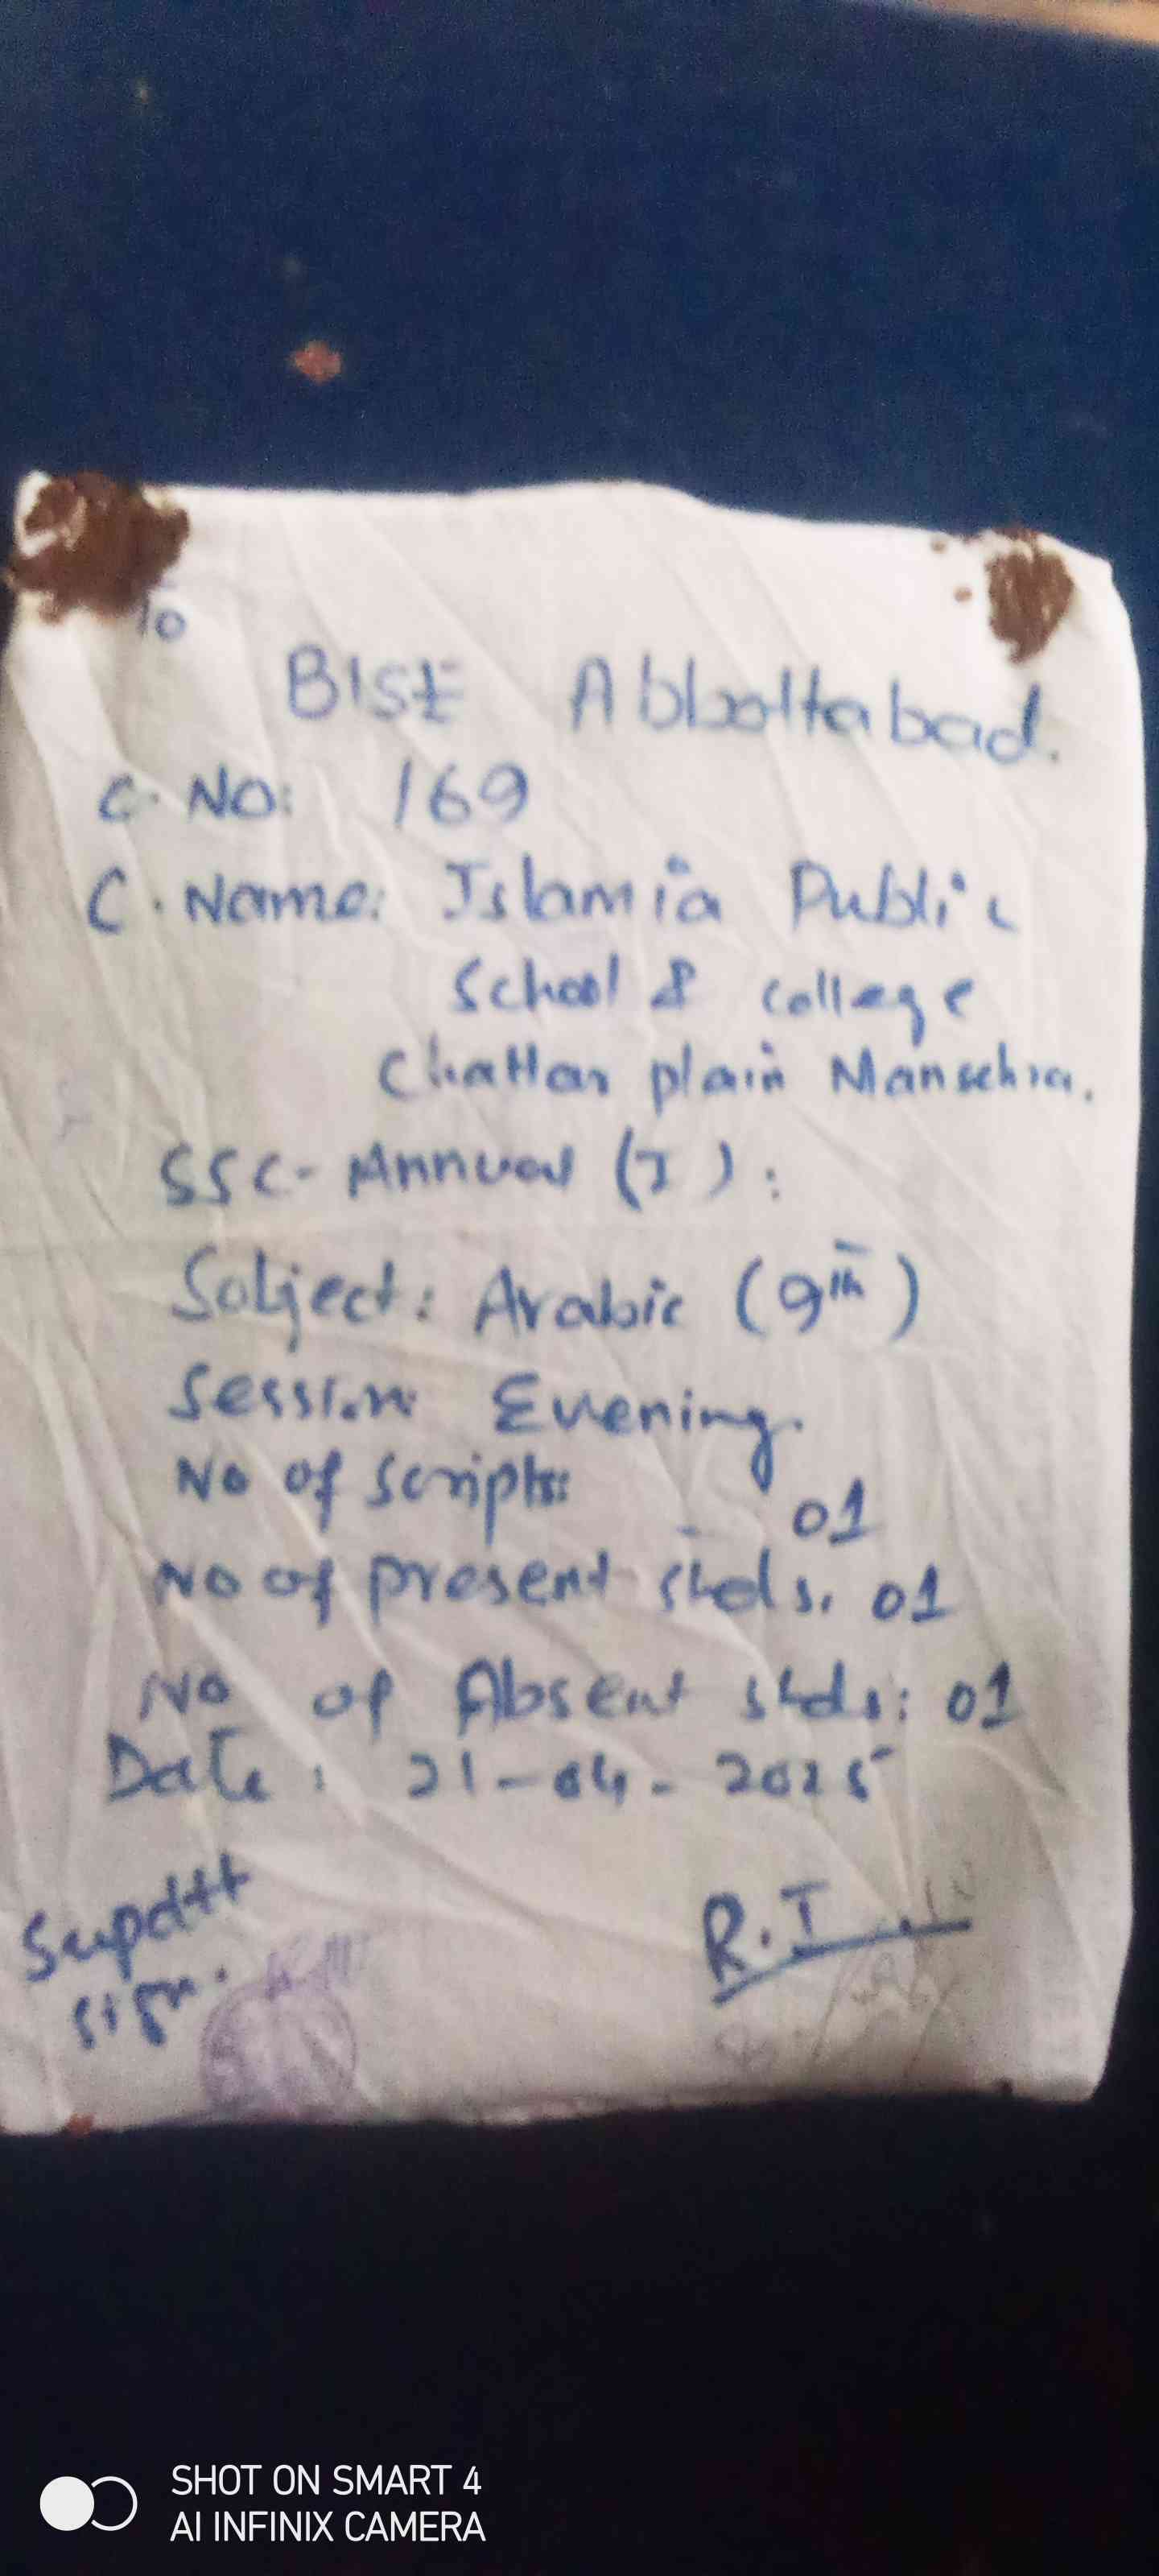 To
BISE Abbottabad.
C. No: 169
C. Name: Islamia Public
School & college
Chattar plain Mansehra.
SSC- Annual (I):
Subject: Arabic (9th)
Session: Evening.
No of scripts: 01
No of present stds. 01
No of Absent stds: 01
Date: 21-04-2025
Supdtt
sign.
R.I
SHOT ON SMART 4
AI INFINIX CAMERA